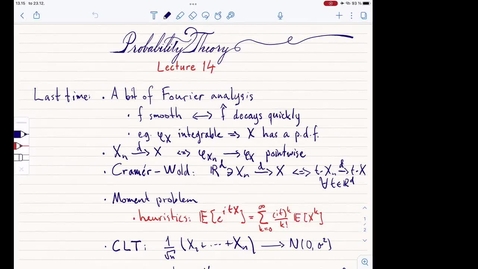 13.15 to 23.12.
93 %
Probability Theory
Lecture 14
Last time: • A bit of Fourier analysis
• f smooth ⟷ f̂ decays quickly
• e.g. φ_X integrable ⇒ X has a p.d.f.
• X_n →^d X ⟺ φ_{X_n} → φ_X pointwise
• Cramér-Wold: ℝ^d ∋ X_n →^d X ⟺ t·X_n →^d t·X
∀ t ∈ ℝ^d
• Moment problem
• heuristics: 𝔼[e^{itX}] = ∑_{k=0}^∞ (it)^k/k! 𝔼[X^k]
• CLT: 1/√n (X_1 + ⋯ + X_n) → N(0, σ²)